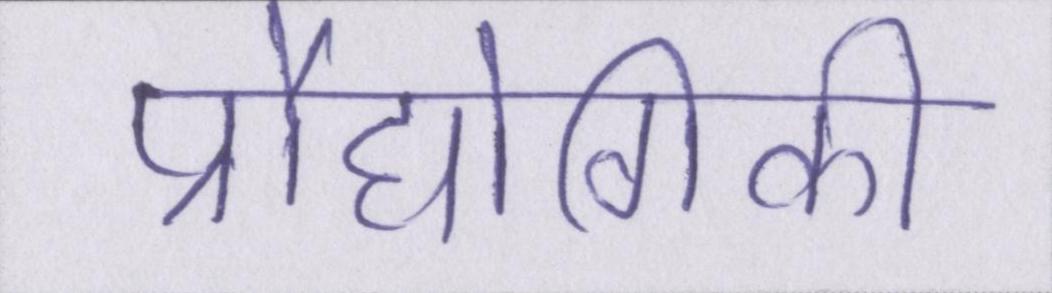 प्रौद्योगिकी